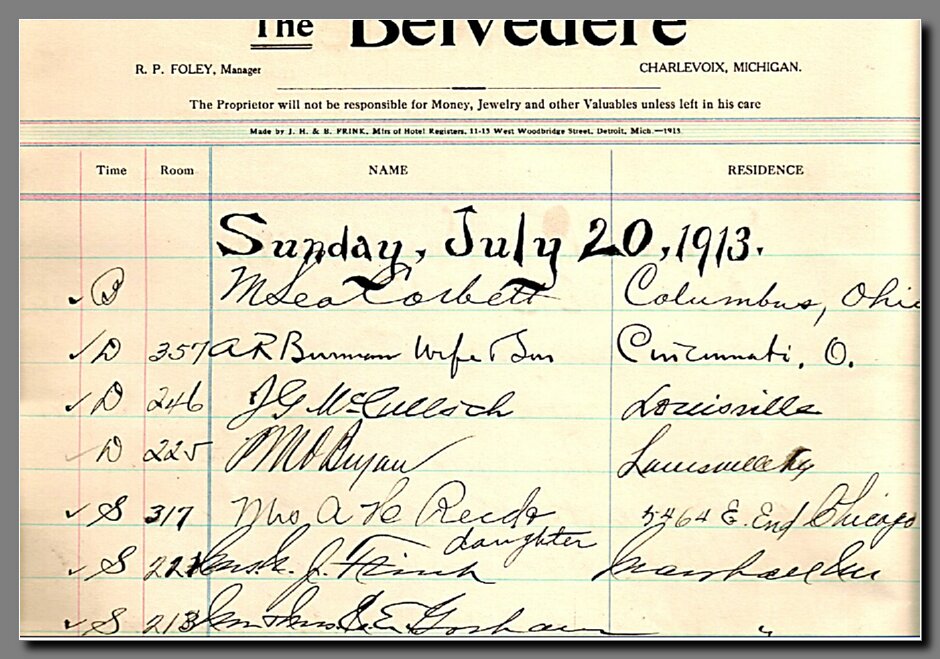 The Belvedere
R. P. FOLEY, Manager CHARLEVOIX, MICHIGAN.
The Proprietor will not be responsible for Money, Jewelry and other Valuables unless left in his care
Made by J. H. & B. FRINK, Mfrs of Hotel Registers, 11-13 West Woodbridge Street, Detroit, Mich.—1913
Time Room NAME RESIDENCE
Sunday, July 20, 1913.
✓ B Corbett Columbus, Ohio
✓ D 357 A R Burman Wife & Son Cincinnati, O.
✓ D 246 J G McCulloch Louisville
D 225 Bryan Louisville Ky
✓ S 317 Mrs A H Reed & 5464 E. End Chicago
daughter
✓ S J. Finch Marshall
✓ S 213 E. Gorham "